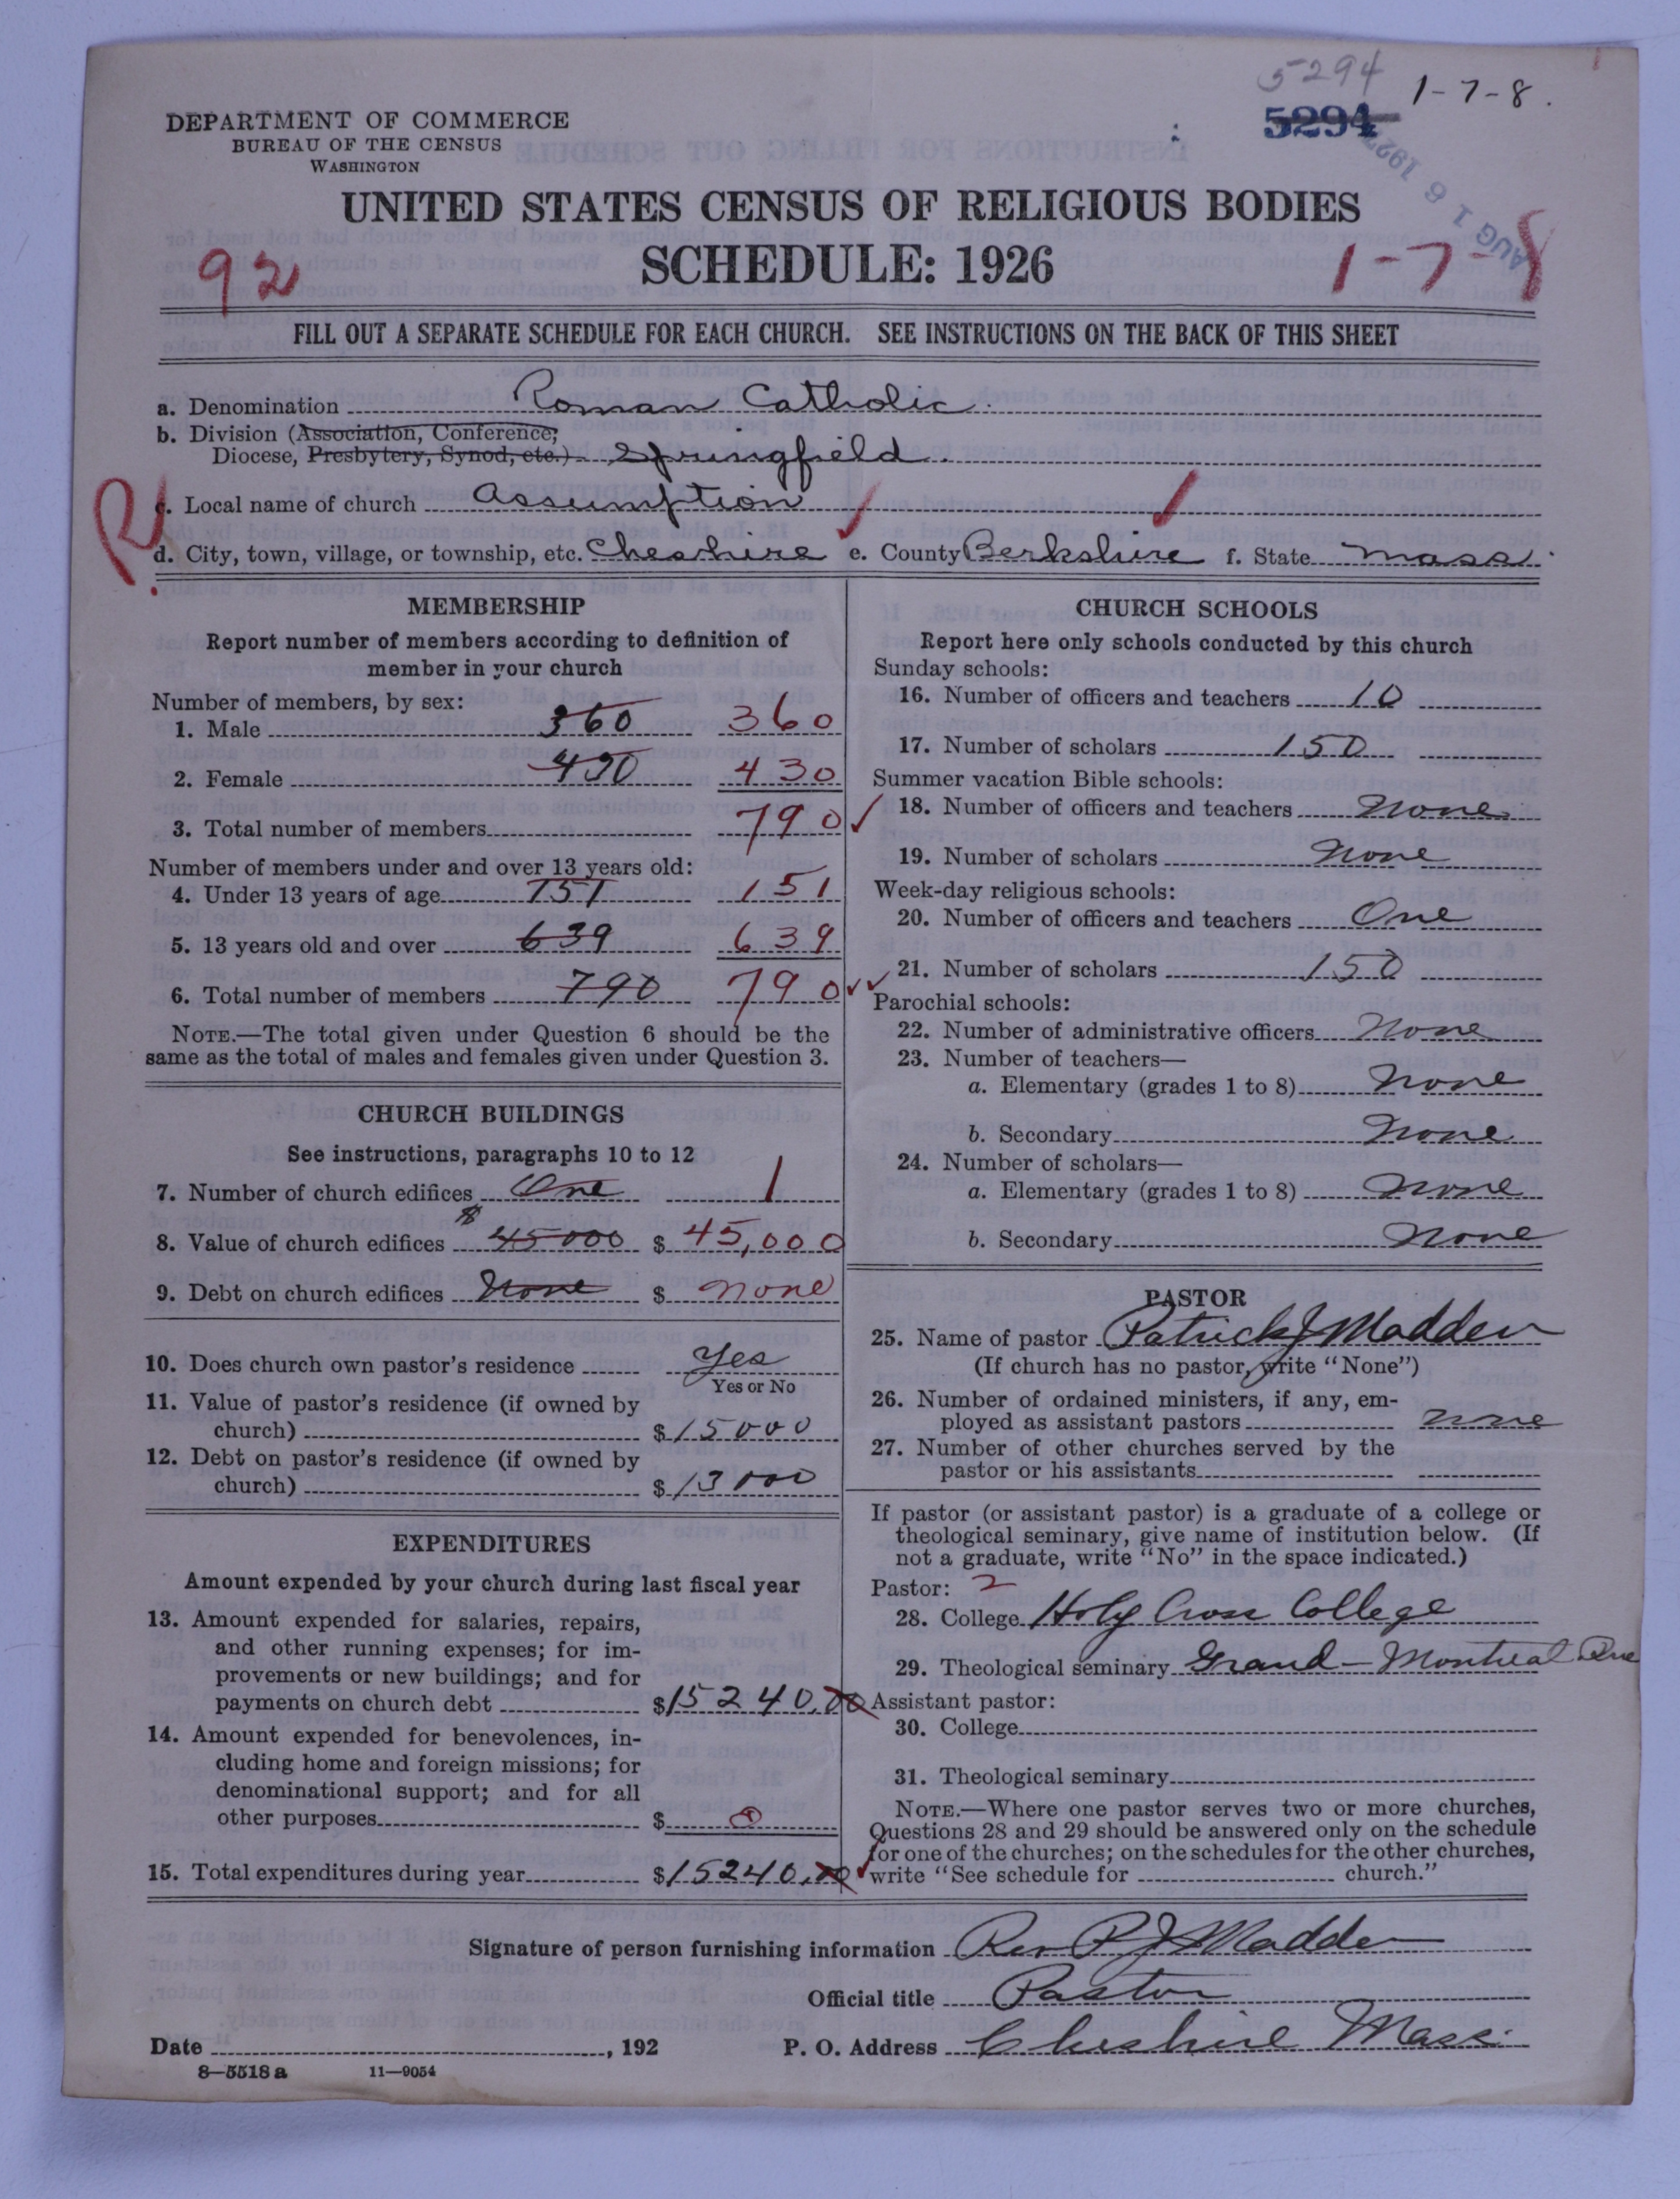 5294
1-7-8.
5294
AUG 16 1927
DEPARTMENT OF COMMERCE
BUREAU OF THE CENSUS
WASHINGTON
UNITED STATES CENSUS OF RELIGIOUS BODIES
SCHEDULE: 1926
92
1-7-8
FILL OUT A SEPARATE SCHEDULE FOR EACH CHURCH. SEE INSTRUCTIONS ON THE BACK OF THIS SHEET
a. Denomination Roman Catholic.
b. Division (Association, Conference,
Diocese, Presbytery, Synod, etc.) Springfield.
R
c. Local name of church Assumption
d. City, town, village, or township, etc. Cheshire e. County Berkshire f. State Mass.
MEMBERSHIP
Report number of members according to definition of
member in your church
Number of members, by sex:
1. Male 360 360
2. Female 430 430
3. Total number of members 790
Number of members under and over 13 years old:
4. Under 13 years of age 151 151
5. 13 years old and over 639 639
6. Total number of members 790 790
NOTE.—The total given under Question 6 should be the
same as the total of males and females given under Question 3.
CHURCH BUILDINGS
See instructions, paragraphs 10 to 12
7. Number of church edifices One 1
8. Value of church edifices $45000 $ 45,000
9. Debt on church edifices None $ none
10. Does church own pastor's residence Yes
Yes or No
11. Value of pastor's residence (if owned by
church) $ 15000
12. Debt on pastor's residence (if owned by
church) $ 13000
EXPENDITURES
Amount expended by your church during last fiscal year
13. Amount expended for salaries, repairs,
and other running expenses; for im-
provements or new buildings; and for
payments on church debt $ 15240.00
14. Amount expended for benevolences, in-
cluding home and foreign missions; for
denominational support; and for all
other purposes $ 0
15. Total expenditures during year $ 15240.00
CHURCH SCHOOLS
Report here only schools conducted by this church
Sunday schools:
16. Number of officers and teachers 10
17. Number of scholars 150
Summer vacation Bible schools:
18. Number of officers and teachers None
19. Number of scholars None
Week-day religious schools:
20. Number of officers and teachers One
21. Number of scholars 150
Parochial schools:
22. Number of administrative officers None
23. Number of teachers—
a. Elementary (grades 1 to 8) None
b. Secondary None
24. Number of scholars—
a. Elementary (grades 1 to 8) None
b. Secondary None
PASTOR
25. Name of pastor Patrick J Madden
(If church has no pastor, write "None")
26. Number of ordained ministers, if any, em-
ployed as assistant pastors none
27. Number of other churches served by the
pastor or his assistants
If pastor (or assistant pastor) is a graduate of a college or
theological seminary, give name of institution below. (If
not a graduate, write "No" in the space indicated.)
Pastor: 2
28. College Holy Cross College
29. Theological seminary Grand - Montreal Que
Assistant pastor:
30. College
31. Theological seminary
NOTE.—Where one pastor serves two or more churches,
Questions 28 and 29 should be answered only on the schedule
for one of the churches; on the schedules for the other churches,
write "See schedule for church."
Signature of person furnishing information Rev P J Madden
Official title Pastor
Date , 192 P. O. Address Cheshire Mass.
8—5518 a 11—9054